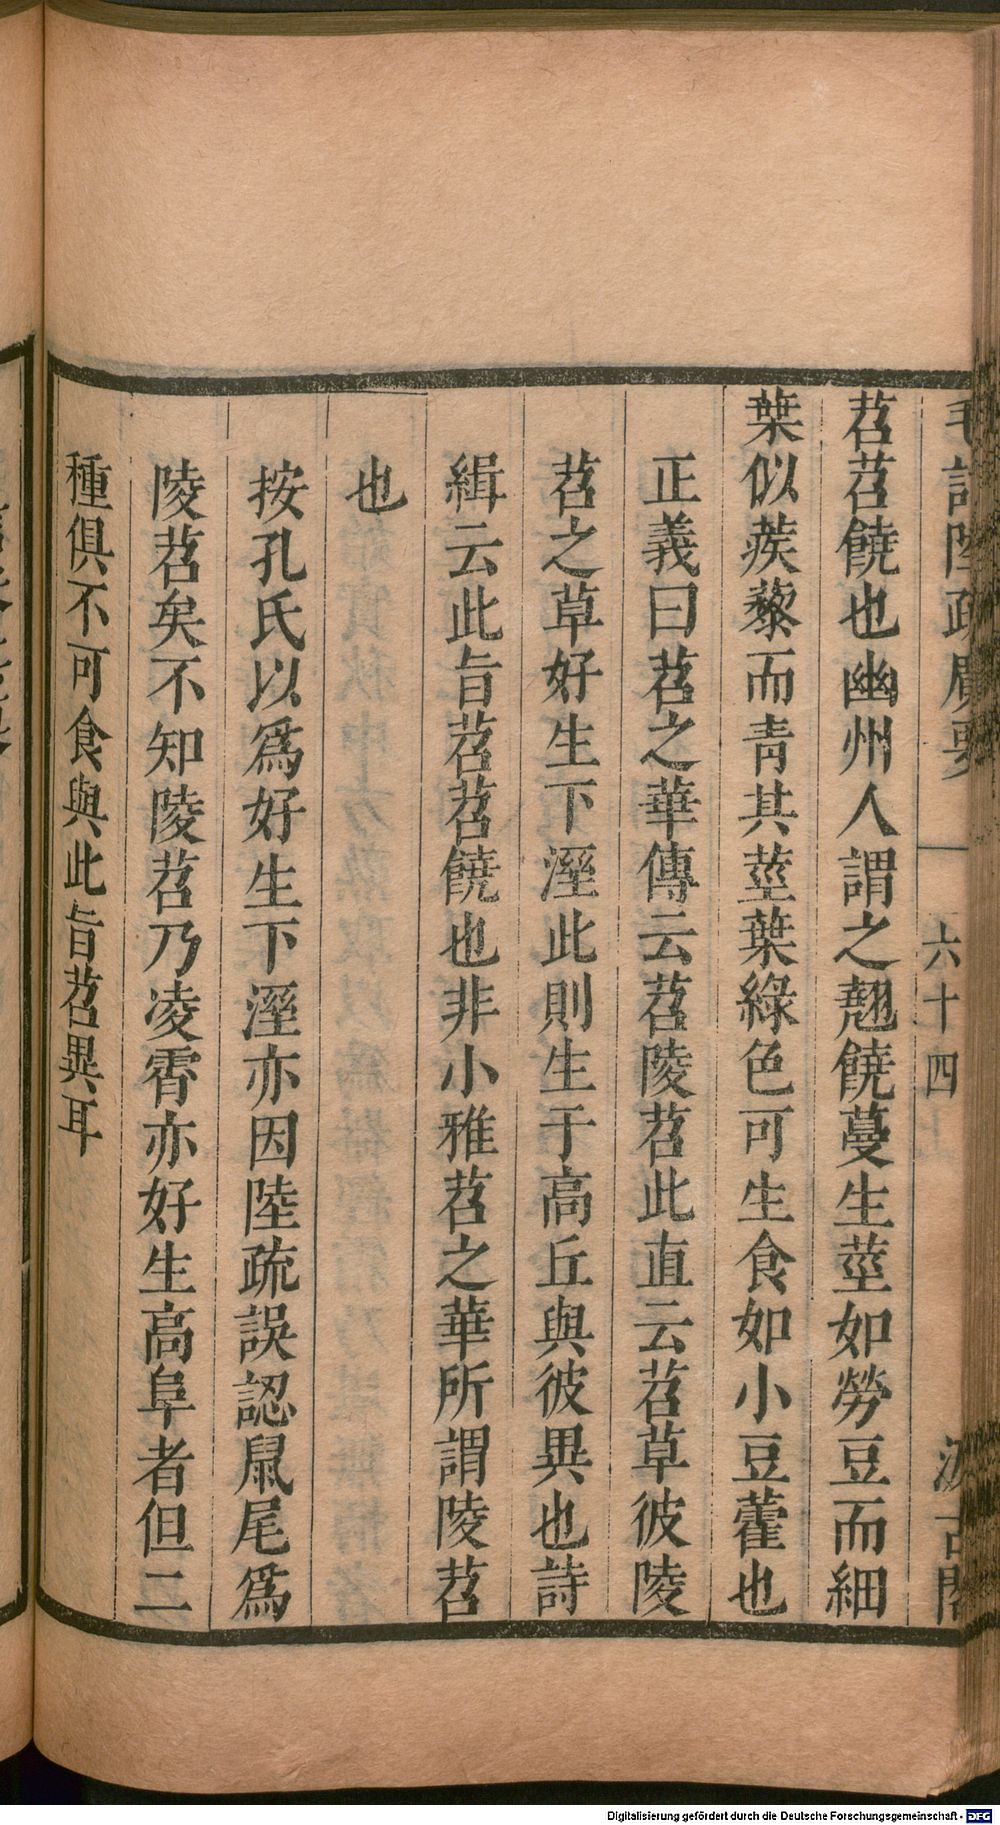 毛詩陸疏廣要
六十四
汲古閣
苕苕饒也幽州人謂之翹饒蔓生莖如勞豆而細
葉似蒺藜而青其莖葉綠色可生食如小豆藿也
正義曰苕之華傳云苕陵苕此直云苕草彼陵
苕之草好生下溼此則生于高丘與彼異也詩
緝云此旨苕苕饒也非小雅苕之華所謂陵苕
也
按孔氏以爲好生下溼亦因陸疏誤認鼠尾爲
陵苕矣不知陵苕乃凌霄亦好生高阜者但二
種俱不可食與此旨苕異耳
Digitalisierung gefördert durch die Deutsche Forschungsgemeinschaft - DFG